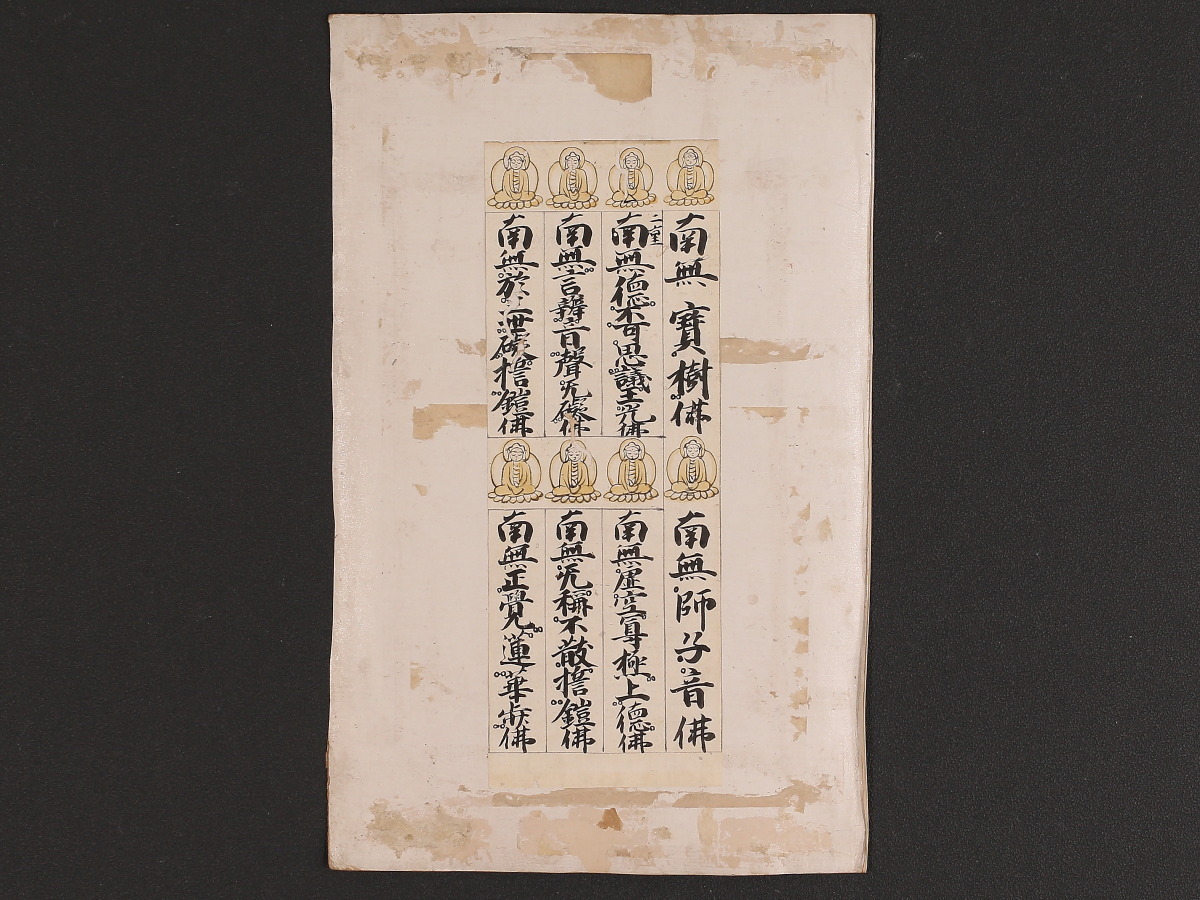 南無寶樹佛
南無德不可思議王光佛
南無言辨音聲无礙佛
南無於礙鎧佛
南無師子音佛
南無虛空尊極上德佛
南無无稱不散鎧佛
南無正覺蓮華步佛